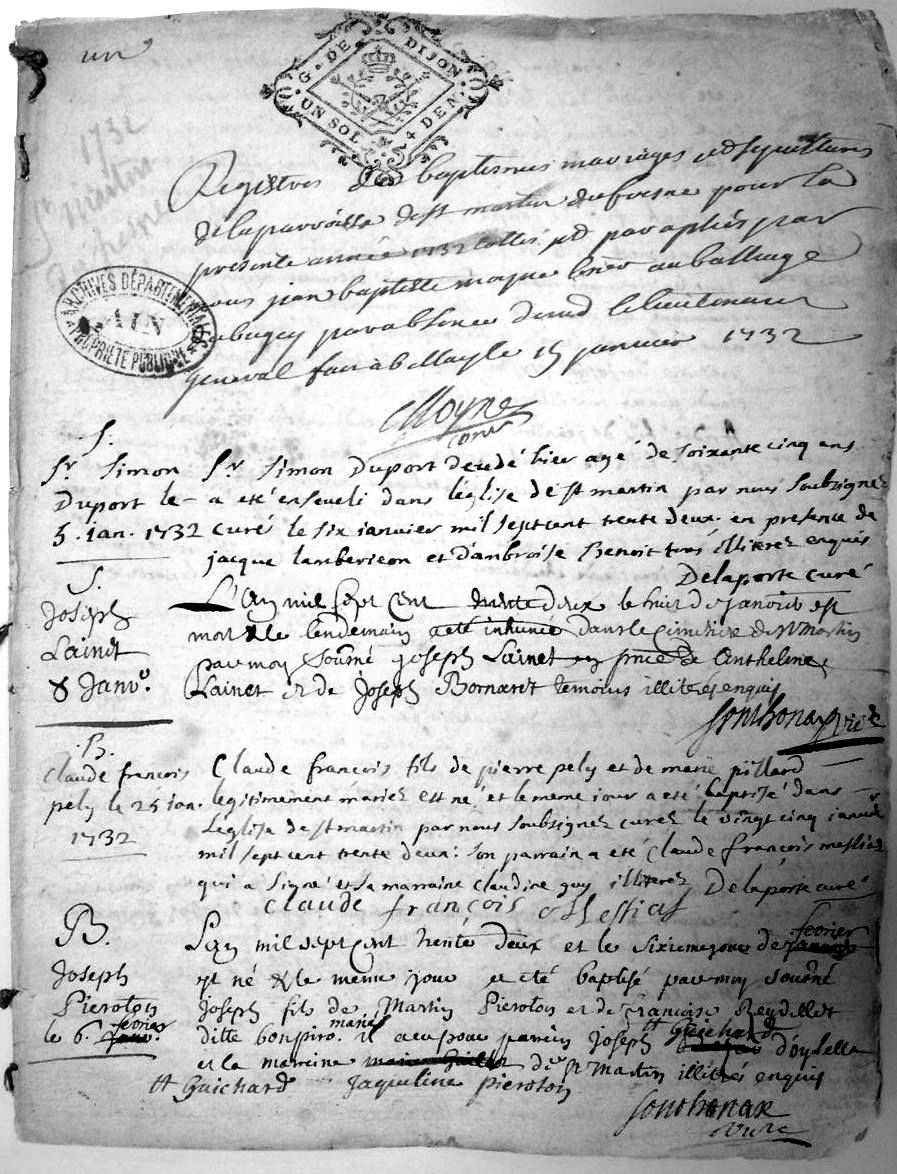 un
G. DE DIJON
UN SOL 4 DEN.
1732
St martin
du fresne
Registres des baptesmes mariages et sepultures
de la parroisse de st martin du fresne pour la
presente année 1732 cottés et paraphés par
nous jean baptiste moyne au balliage
de bugey par absence de le lieutenant
general fait à b 15 janvier 1732
ARCHIVES DÉPARTEMENTALES
AIN
PROPRIÉTÉ PUBLIQUE
Moyne
S.
Sr. Simon
Duport le
5. jan. 1732
Sr. Simon Duport decedé hier agé de soixante cinq ans
a eté enseveli dans l'église de st martin par nous soubsignez
curé le six janvier mil sept cent trente deux. en presence de
jacque lamberieon et d'ambroise Benoit tous illiterez enquis
Delaporte curé
S.
Joseph
Lainet
8 Janvo.
L'an mil sept cent trente deux le huit de Janvie est
mort & le lendemain a eté inhumé dans le cimitire de st Martin
par moy sousné joseph Lainet en pnce de Anthelme
Lainet et de Joseph Bornaret temoins illiterés enquis
Sonthonax vice
B.
Claude francois
pely le 25 jan.
1732
Claude francois fils de pierre pely et de marie pillard
legitimement mariez est né, et le meme jour a eté baptisé dans
l'eglise de st martin par nous soubsignez curez le vingt cinq janvier
mil sept cent trente deux: son parrain a eté Claude francois messiaz
qui a signé et sa marraine claudine guy illiterez Delaporte curé
claude françois Messiat
B.
Joseph
Pieroton
le 6. fevrier janv.
L'an mil sept cent trente deux et le sixieme jour de fevrier
est né & le meme jour a eté baptisé par moy sousné
Joseph fils de Martin Pieroton et de francoise Reydellet
ditte bonpiro. mariés il a eu pour parrin Joseph tt Guichard d'oyselle
et la marrine de st Martin illitrés enquis
tt Guichard Jaqueline pieroton
Sonthonax
vicre